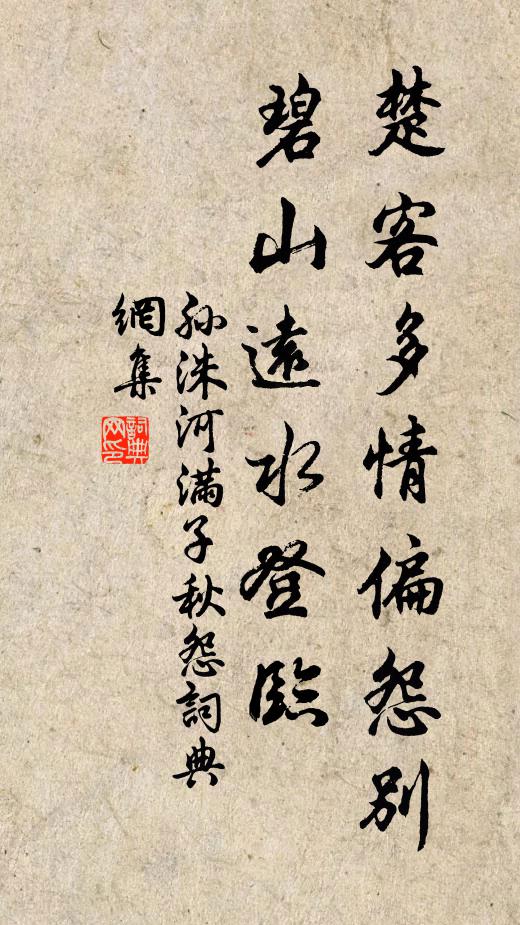 楚客多情偏怨別
碧山遠水登臨
孫洙河滿子秋怨詞典
網集
詞典
网印